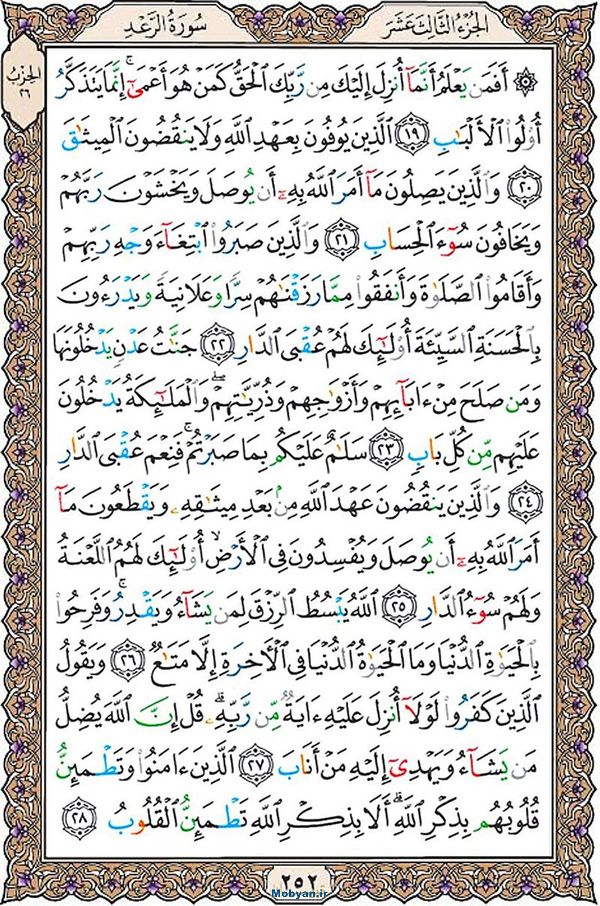 الجزء الثالث عشر
سورة الرعد
الحزب
٢٦
۞ أَفَمَن يَعْلَمُ أَنَّمَآ أُنزِلَ إِلَيْكَ مِن رَّبِّكَ ٱلْحَقُّ كَمَنْ هُوَ أَعْمَىٰٓ ۚ إِنَّمَا يَتَذَكَّرُ
أُو۟لُوا۟ ٱلْأَلْبَـٰبِ ﴿١٩﴾ ٱلَّذِينَ يُوفُونَ بِعَهْدِ ٱللَّهِ وَلَا يَنقُضُونَ ٱلْمِيثَـٰقَ
﴿٢٠﴾ وَٱلَّذِينَ يَصِلُونَ مَآ أَمَرَ ٱللَّهُ بِهِۦٓ أَن يُوصَلَ وَيَخْشَوْنَ رَبَّهُمْ
وَيَخَافُونَ سُوٓءَ ٱلْحِسَابِ ﴿٢١﴾ وَٱلَّذِينَ صَبَرُوا۟ ٱبْتِغَآءَ وَجْهِ رَبِّهِمْ
وَأَقَامُوا۟ ٱلصَّلَوٰةَ وَأَنفَقُوا۟ مِمَّا رَزَقْنَـٰهُمْ سِرًّا وَعَلَانِيَةً وَيَدْرَءُونَ
بِٱلْحَسَنَةِ ٱلسَّيِّئَةَ أُو۟لَـٰٓئِكَ لَهُمْ عُقْبَى ٱلدَّارِ ﴿٢٢﴾ جَنَّـٰتُ عَدْنٍ يَدْخُلُونَهَا
وَمَن صَلَحَ مِنْ ءَابَآئِهِمْ وَأَزْوَٰجِهِمْ وَذُرِّيَّـٰتِهِمْ ۖ وَٱلْمَلَـٰٓئِكَةُ يَدْخُلُونَ
عَلَيْهِم مِّن كُلِّ بَابٍ ﴿٢٣﴾ سَلَـٰمٌ عَلَيْكُم بِمَا صَبَرْتُمْ ۚ فَنِعْمَ عُقْبَى ٱلدَّارِ
﴿٢٤﴾ وَٱلَّذِينَ يَنقُضُونَ عَهْدَ ٱللَّهِ مِنۢ بَعْدِ مِيثَـٰقِهِۦ وَيَقْطَعُونَ مَآ
أَمَرَ ٱللَّهُ بِهِۦٓ أَن يُوصَلَ وَيُفْسِدُونَ فِى ٱلْأَرْضِ ۙ أُو۟لَـٰٓئِكَ لَهُمُ ٱللَّعْنَةُ
وَلَهُمْ سُوٓءُ ٱلدَّارِ ﴿٢٥﴾ ٱللَّهُ يَبْسُطُ ٱلرِّزْقَ لِمَن يَشَآءُ وَيَقْدِرُ ۚ وَفَرِحُوا۟
بِٱلْحَيَوٰةِ ٱلدُّنْيَا وَمَا ٱلْحَيَوٰةُ ٱلدُّنْيَا فِى ٱلْـَٔاخِرَةِ إِلَّا مَتَـٰعٌ ﴿٢٦﴾ وَيَقُولُ
ٱلَّذِينَ كَفَرُوا۟ لَوْلَآ أُنزِلَ عَلَيْهِ ءَايَةٌ مِّن رَّبِّهِۦ ۗ قُلْ إِنَّ ٱللَّهَ يُضِلُّ
مَن يَشَآءُ وَيَهْدِىٓ إِلَيْهِ مَنْ أَنَابَ ﴿٢٧﴾ ٱلَّذِينَ ءَامَنُوا۟ وَتَطْمَئِنُّ
قُلُوبُهُم بِذِكْرِ ٱللَّهِ ۗ أَلَا بِذِكْرِ ٱللَّهِ تَطْمَئِنُّ ٱلْقُلُوبُ ﴿٢٨﴾
٢٥٢
Mobyan.ir